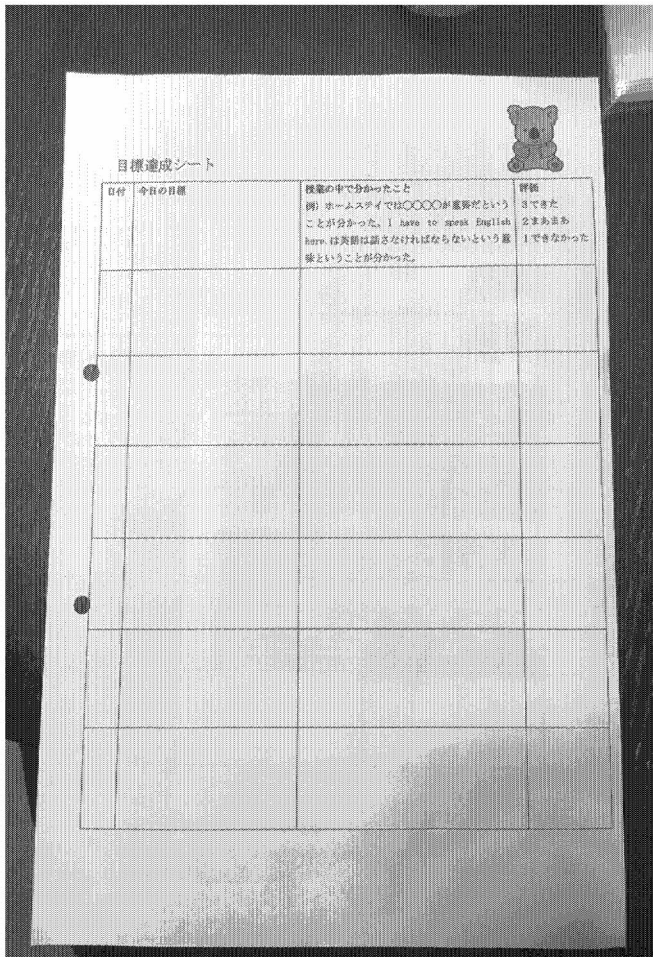 目標達成シート
日付
今日の目標
授業の中で分かったこと
例）ホームステイでは〇〇〇〇が重要だという
ことが分かった。I have to speak English
here.は英語は話さなければならないという意
味ということが分かった。
評価
3できた
2まあまあ
1できなかった